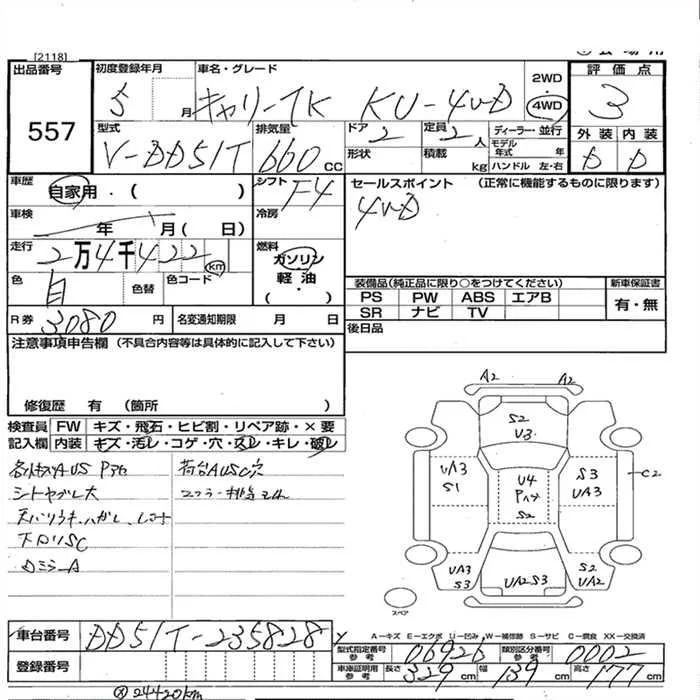 [2118]
出品番号
557
初度登録年月
5 月
車名・グレード
キャリートK KU-4WD
2WD
4WD
評価点
3
外装 内装
D D
型式
V-DD51T
排気量
660 CC
ドア
2
定員
2 人
形状
積載
kg
ディーラー・並行
モデル年式 年
ハンドル 左・右
車歴
自家用・( )
シフト
F4
セールスポイント (正常に機能するものに限ります)
4WD
車検
年 月( 日)
冷房
走行
2万4千422 km
燃料
ガソリン
軽油
( ・ )
色
白
色替
色コード
装備品(純正品に限り○をつけてください)
PS PW ABS エアB
SR ナビ TV
新車保証書
有・無
R券
3080 円
名変通知期限 月 日
後日品
注意事項申告欄 (不具合内容等は具体的に記入して下さい)
修復歴 有 (箇所 )
検査員記入欄
FW キズ・飛石・ヒビ割・リペア跡・×要
内装 キズ・汚レ・コゲ・穴・スレ・キレ・破レ
シートヤブレ大
下回りSC
A2 A2
S2
V3
UA3
S1
U4
S2
S3
UA3
C2
UA3
S3
UA2S3
S2
UA2
スペア
A-キズ E-エクボ U-凹み W-補修跡 S-サビ C-腐食 XX-交換済
車台番号
DD51T-235828
登録番号
型式指定番号 参考
06926
類別区分番号 参考
0002
車庫証明用 参考
長さ 329 cm
幅 139 cm
高さ 177 cm
24420km